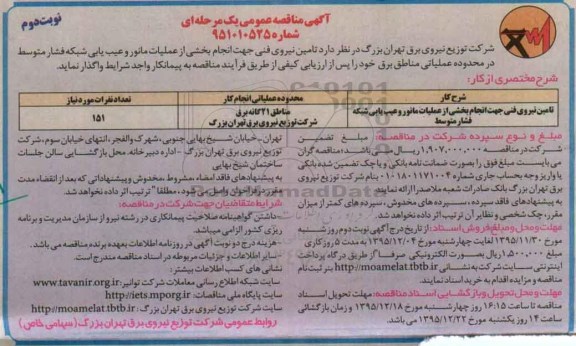 آگهی مناقصه عمومی یک مرحله ای
شماره ۹۵۱۰۱۰۵۲۵
نوبت دوم
شرکت توزیع نیروی برق تهران بزرگ در نظر دارد تامین نیروی فنی جهت انجام بخشی از عملیات مانور و عیب یابی شبکه فشار متوسط
در محدوده عملیاتی مناطق برق خود را پس از ارزیابی کیفی از طریق فرآیند مناقصه به پیمانکار واجد شرایط واگذار نماید.
شرح مختصری از کار:
شرح کار
محدوده عملیاتی انجام کار
تعداد نفرات مورد نیاز
تامین نیروی فنی جهت انجام بخشی از عملیات مانور و عیب یابی شبکه
فشار متوسط
مناطق ۲۱ گانه برق
شرکت توزیع نیروی برق تهران بزرگ
۱۵۱
مبلغ و نوع سپرده شرکت در مناقصه: مبلغ تضمین
شرکت در مناقصه ۱,۹۰۷,۰۰۰,۰۰۰ ریال می باشد؛ مناقصه گران
می بایست مبلغ فوق را بصورت ضمانت نامه بانکی و یا چک تضمین شده بانکی
یا واریز وجه بحساب جاری شماره ۰۱۰۱۸۰۱۱۷۱۰۰۴ بنام شرکت توزیع نیروی
برق تهران بزرگ بانک صادرات شعبه ملاصدرا ارائه نمایند.
به پیشنهادهای فاقد سپرده، سپرده های مخدوش، سپرده های کمتر از میزان
مقرر، چک شخصی و نظایر آن ترتیب اثر داده نخواهد شد.
مهلت و محل و مبلغ فروش اسناد: از تاریخ درج آگهی نوبت دوم روز شنبه
مورخ ۱۳۹۵/۱۱/۳۰ لغایت چهارشنبه مورخ ۱۳۹۵/۱۲/۰۴ به مدت ۵ روز کاری
مبلغ ۱,۵۰۰,۰۰۰ ریال بصورت الکترونیکی صرفا از طریق درگاه پرداخت
اینترنتی سایت شرکت به نشانی http://moamelat.tbtb.ir بنر ثبت نام
مناقصه و مزایده اقدام به خرید اسناد نمایند.
مهلت و محل تحویل و بازگشایی اسناد مناقصه: مهلت تحویل اسناد
مناقصه تا ساعت ۱۶:۱۵ روز چهارشنبه مورخ ۱۳۹۵/۱۲/۱۸ و زمان بازگشائی
ساعت ۱۴ روز یکشنبه مورخ ۱۳۹۵/۱۲/۲۲ می باشد.
تهران - خیابان شیخ بهایی جنوبی، شهرک والفجر، انتهای خیابان سوم، شرکت
توزیع نیروی برق تهران بزرگ - اداره دبیرخانه. محل بازگشایی سالن جلسات
ساختمان شیخ بهایی
به پیشنهادهای فاقد امضاء، مشروط، مخدوش و پیشنهاداتی که بعد از انقضاء مدت
مقرر در فراخوان واصل می شود، مطلقا ترتیب اثر داده نخواهد شد.
شرایط متقاضیان جهت شرکت در مناقصه:
-داشتن گواهینامه صلاحیت پیمانکاری در رشته نیرو از سازمان مدیریت و برنامه
ریزی کشور الزامی میباشد.
-هزینه درج دو نوبت آگهی در روزنامه اطلاعات بعهده برنده مناقصه می باشد.
-سایر اطلاعات و جزئیات مربوطه در اسناد مناقصه مندرج است.
نشانی های کسب اطلاعات بیشتر:
سایت شبکه اطلاع رسانی معاملات شرکت توانیر: www.tavanir.org.ir
سایت پایگاه ملی مناقصات: http://iets.mporg.ir
سایت شرکت توزیع نیروی برق تهران بزرگ: http://moamelat.tbtb.ir
روابط عمومی شرکت توزیع نیروی برق تهران بزرگ (سهامی خاص)